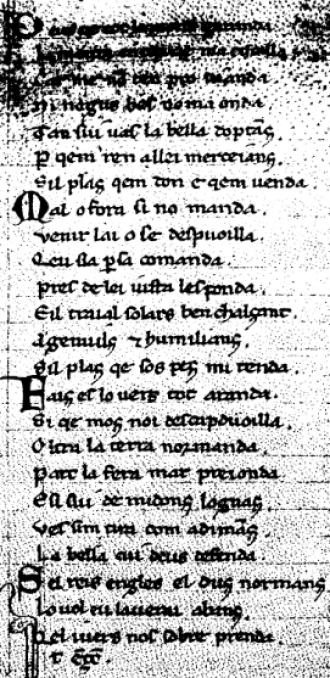 garanda
La
pro uianda
Ni negus bos no ma onda.
Tan sui uas la bella doptãs
P qem ren a llei merceianς.
Sil plaς qem don e qem uenda.
Mal o fara si no manda.
Venir lai o se despuoilla.
Qeu sia psa comanda.
Pres de lei iusta lesponda
Eil traial solars ben chalçanz.
Agenuilς ⁊ humilianς.
Sil plaς qe sos peς mi tenda.
Faiς es lo uers tot aranda.
Si qe moς noi descapduoilla.
Oltra la terra normanda.
Part la fera mar preionda
E si sui de midonς
Ves sim tira com adimãς
La bella cui deus defenda
Sel reis engles el duς normanς
Lo uol eu lauerai abanς
Qel iuers nos sobre prenda.